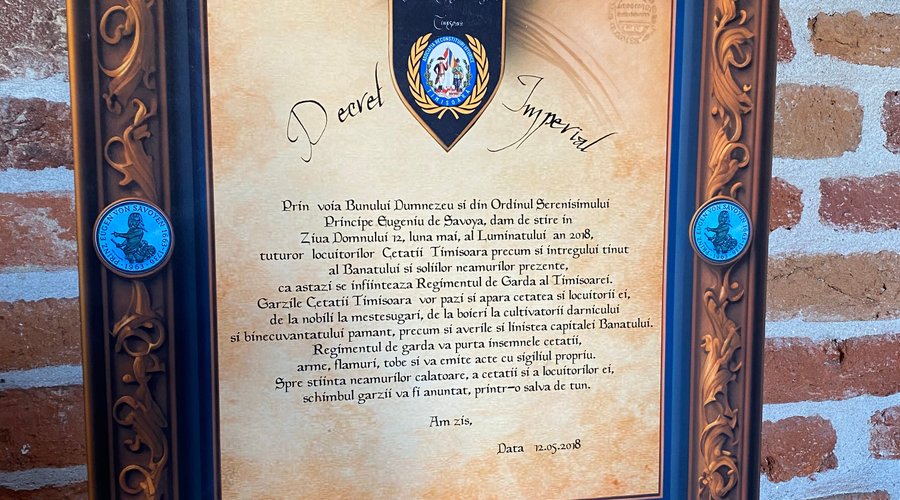 Timișoara
ASOCIATIA RECONSTITUIRI ISTORICE
TIMISOARA
Decret Imperial
Prin voia Bunului Dumnezeu si din Ordinul Serenisimului
Principe Eugeniu de Savoya, dam de stire in
Ziua Domnului 12, luna mai, al Luminatului an 2018,
tuturor locuitorilor Cetatii Timisoara precum si intregului tinut
al Banatului si soliilor neamurilor prezente,
ca astazi se infiinteaza Regimentul de Garda al Timisoarei.
Garzile Cetatii Timisoara vor pazi si apara cetatea si locuitorii ei,
de la nobili la mestesugari, de la boieri la cultivatorii darnicului
si binecuvantatului pamant, precum si averile si linistea capitalei Banatului.
Regimentul de garda va purta insemnele cetatii,
arme, flamuri, tobe si va emite acte cu sigiliul propriu.
Spre stiinta neamurilor calatoare, a cetatii si a locuitorilor ei,
schimbul garzii va fi anuntat, printr-o salva de tun.
Am zis,
Data 12.05.2018
PRINZ EUGEN VON SAVOYEN
PRINZ EUGEN VON SAVOYEN